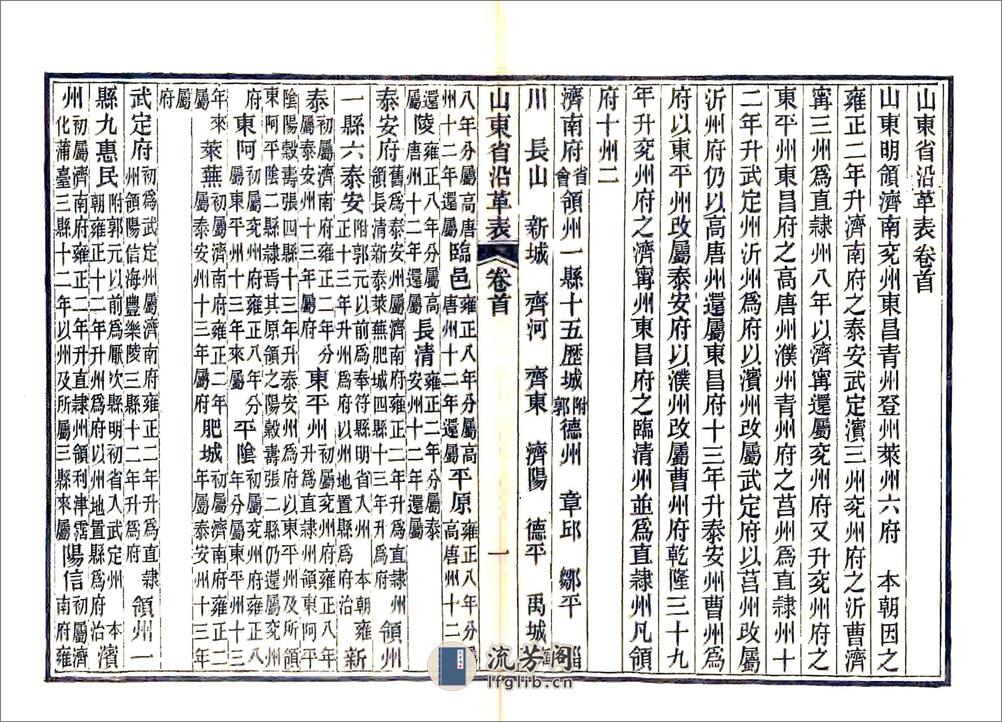 山東省沿革表卷首
山東明領濟南兗州東昌青州登州萊州六府　本朝因之
雍正二年升濟南府之泰安武定濱三州兗州府之沂曹濟
寧三州爲直隸州八年以濟寧還屬兗州府又升兗州府之
東平州東昌府之高唐州濮州青州府之莒州爲直隸州十
二年升武定州沂州爲府以濱州改屬武定府以莒州改屬
沂州府仍以高唐州還屬東昌府十三年升泰安州曹州爲
府以東平州改屬泰安府以濮州改屬曹州府乾隆三十九
年升兗州府之濟寧州東昌府之臨清州並爲直隸州凡領
府十州二
濟南府省會領州一縣十五歷城附郭德州　章邱　鄒平　淄
川　長山　新城　齊河　齊東　濟陽　德平　禹城
山東省沿革表　卷首　一
八年分屬高唐州十二年還屬臨邑雍正八年分屬高唐州十二年還屬平原雍正八年分屬高唐州十二
還陵雍正八年分屬高唐州十二年還屬長清雍正二年分屬泰安州十二年還屬
泰安府舊爲泰安州屬濟南府雍正二年升爲直隸州領新泰萊蕪長清肥城四縣十三年升爲府領州
一縣六泰安附郭元以前爲奉符縣明省入州　本朝雍正十三年升州爲府以州地置縣爲府治新
泰初屬濟南府雍正二年分屬泰安州十三年屬府東平州初屬兗州府雍正八年升爲直隸州領東阿平
陰陽穀壽張四縣十三年升泰安州爲府以東平州及所領東阿平陰二縣隸焉其原領之陽穀壽張二縣仍還屬兗州
府東阿初屬兗州府雍正八年分屬東平州十三年來屬平陰初屬兗州府雍正八年分屬東平州十三
年來屬萊蕪初屬濟南府雍正二年分屬泰安州十三年屬府肥城初屬濟南府雍正二年分屬泰安州十三年
屬府
武定府初爲武定州屬濟南府雍正二年升爲直隸州領陽信海豐樂陵三縣十二年升爲府領州一
縣九惠民附郭元以前爲厭次縣明初省入武定州　本朝雍正十二年升州爲府以州地置縣爲府治濱
州初屬濟南府雍正二年升直隸州領利津霑化蒲臺三縣十二年以州及所屬三縣來屬陽信初屬濟南府雍
流芳阁
lfglib.cn